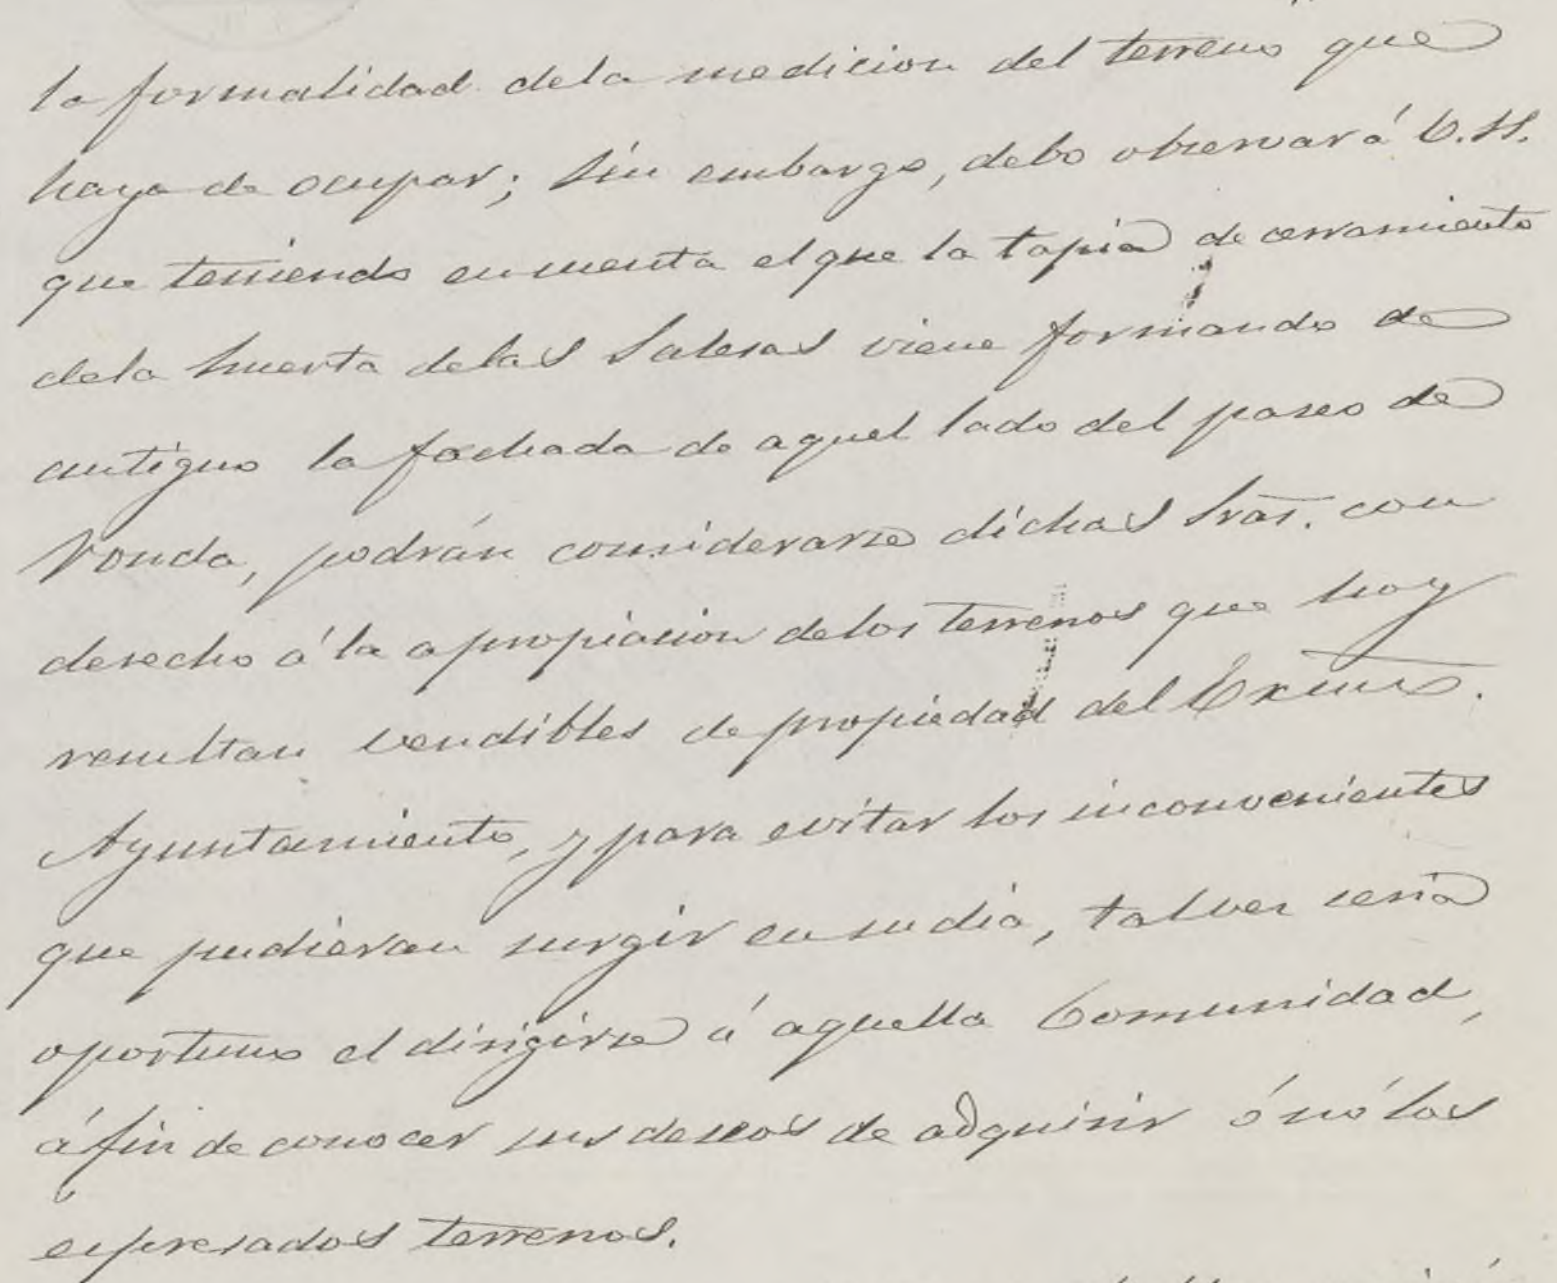 la formalidad dela medicion del terreno que
haya de ocupar; sin embargo, debo observar á V.S.
que teniendo encuenta elque la tapia de cerramiento
dela huerta delas Salesas viene formando de
antiguo la fachada de aquel lado del paseo de
Ronda, podrán considerarse dichas Sras. con
derecho á la apropiacion delos terrenos que hoy
resultan vendibles de propiedad del Excmo.
Ayuntamiento, y para evitar los inconvenientes
que pudieran surgir ensudia, talvez seria
oportuno el dirigirse á aquella Comunidad,
áfin de conocer sus deseos de adquirir ó nó los
espresados terrenos.